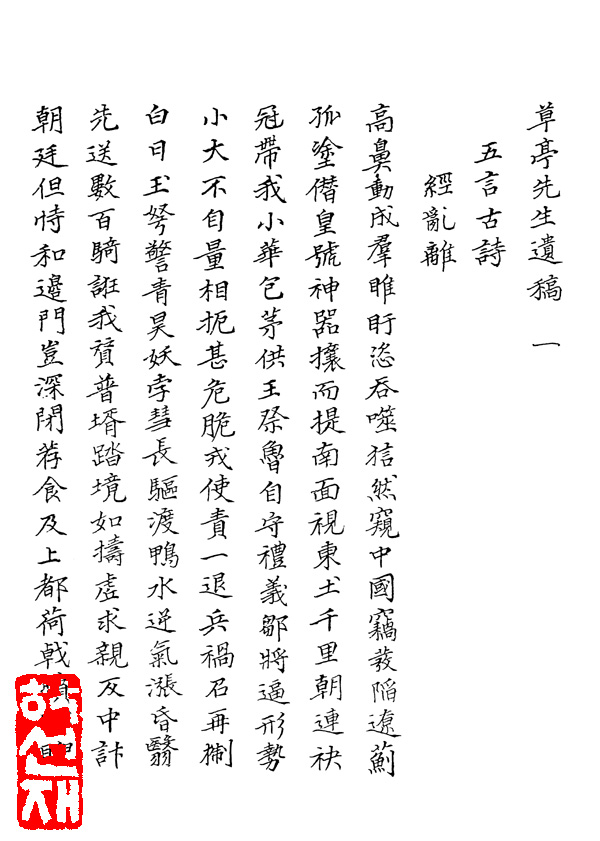 草亭先生遺稿 一
五言古詩
經亂離
高鼻動成羣睢盱恣吞噬狺然窺中國竊發陷遼薊
孤塗僭皇號神器攘而提南面視東土千里朝連袂
冠帶我小華包茅供王祭魯自守禮義鄒將逼形勢
小大不自量相扼甚危脆戎使責一退兵禍召再掣
白日玉弩警青昊妖孛彗長驅渡鴨水逆氣漲昏翳
先送數百騎誑我贅普壻踏境如擣虛求親反中計
朝廷但恃和邊門豈深閉荐食及上都荷戟
학선재